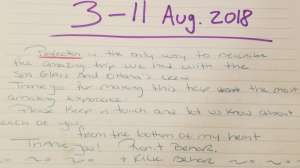 3-11 Aug. 2018
Perfection is the only way to describe
the amazing trip we had with the
Sea Gloss and crew
Thank you for making this trip the most
amazing experience!
Please keep in touch and let us know about
each of you,
from the bottom of my heart
Thank you!